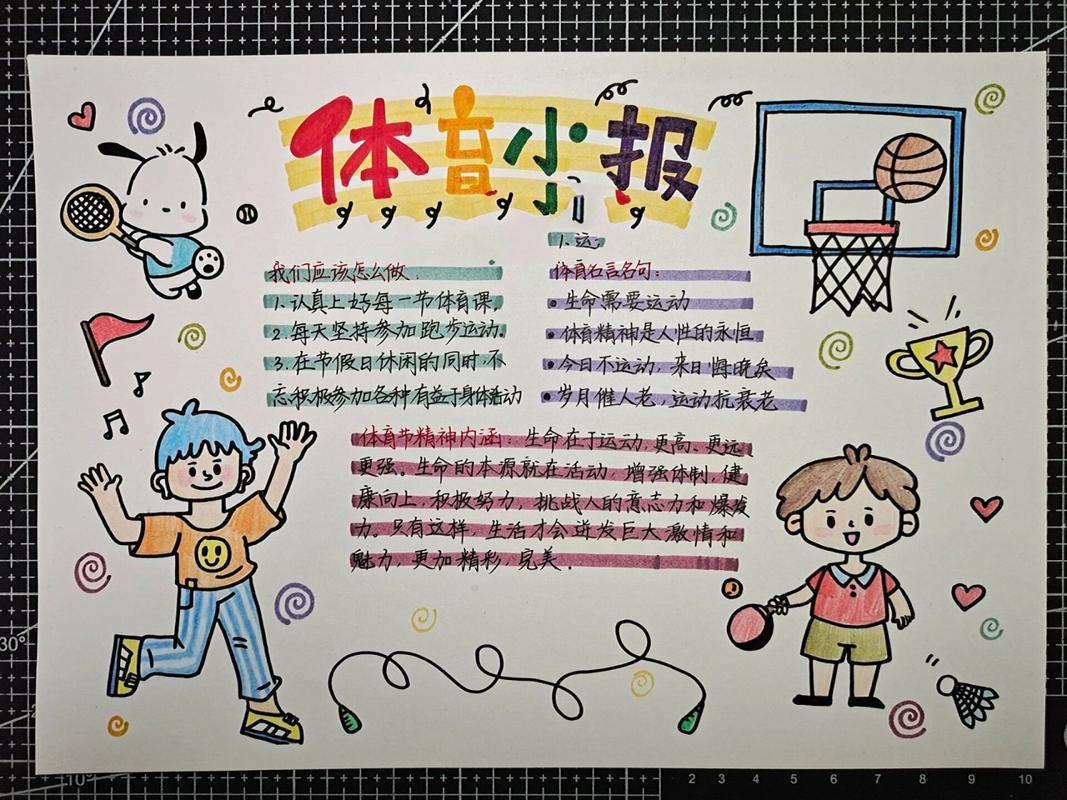 体育小报
1.运
我们应该怎么做：
1.认真上好每一节体育课。
2.每天坚持参加跑步运动。
3.在节假日休闲的同时，不
忘积极参加各种有益于身体活动
体育名言名句：
•生命需要运动
•体育精神是人性的永恒
•今日不运动，来日悔晚矣
•岁月催人老，运动抗衰老
体育节精神内涵：生命在于运动，更高、更远、
更强。生命的本源就在活动，增强体制，健
康向上，积极努力，挑战人的意志力和爆发
力。只有这样，生活才会迸发巨大激情和
魅力，更加精彩，完美。
30°
10°
2 3 4 5 6 7 8 9 10